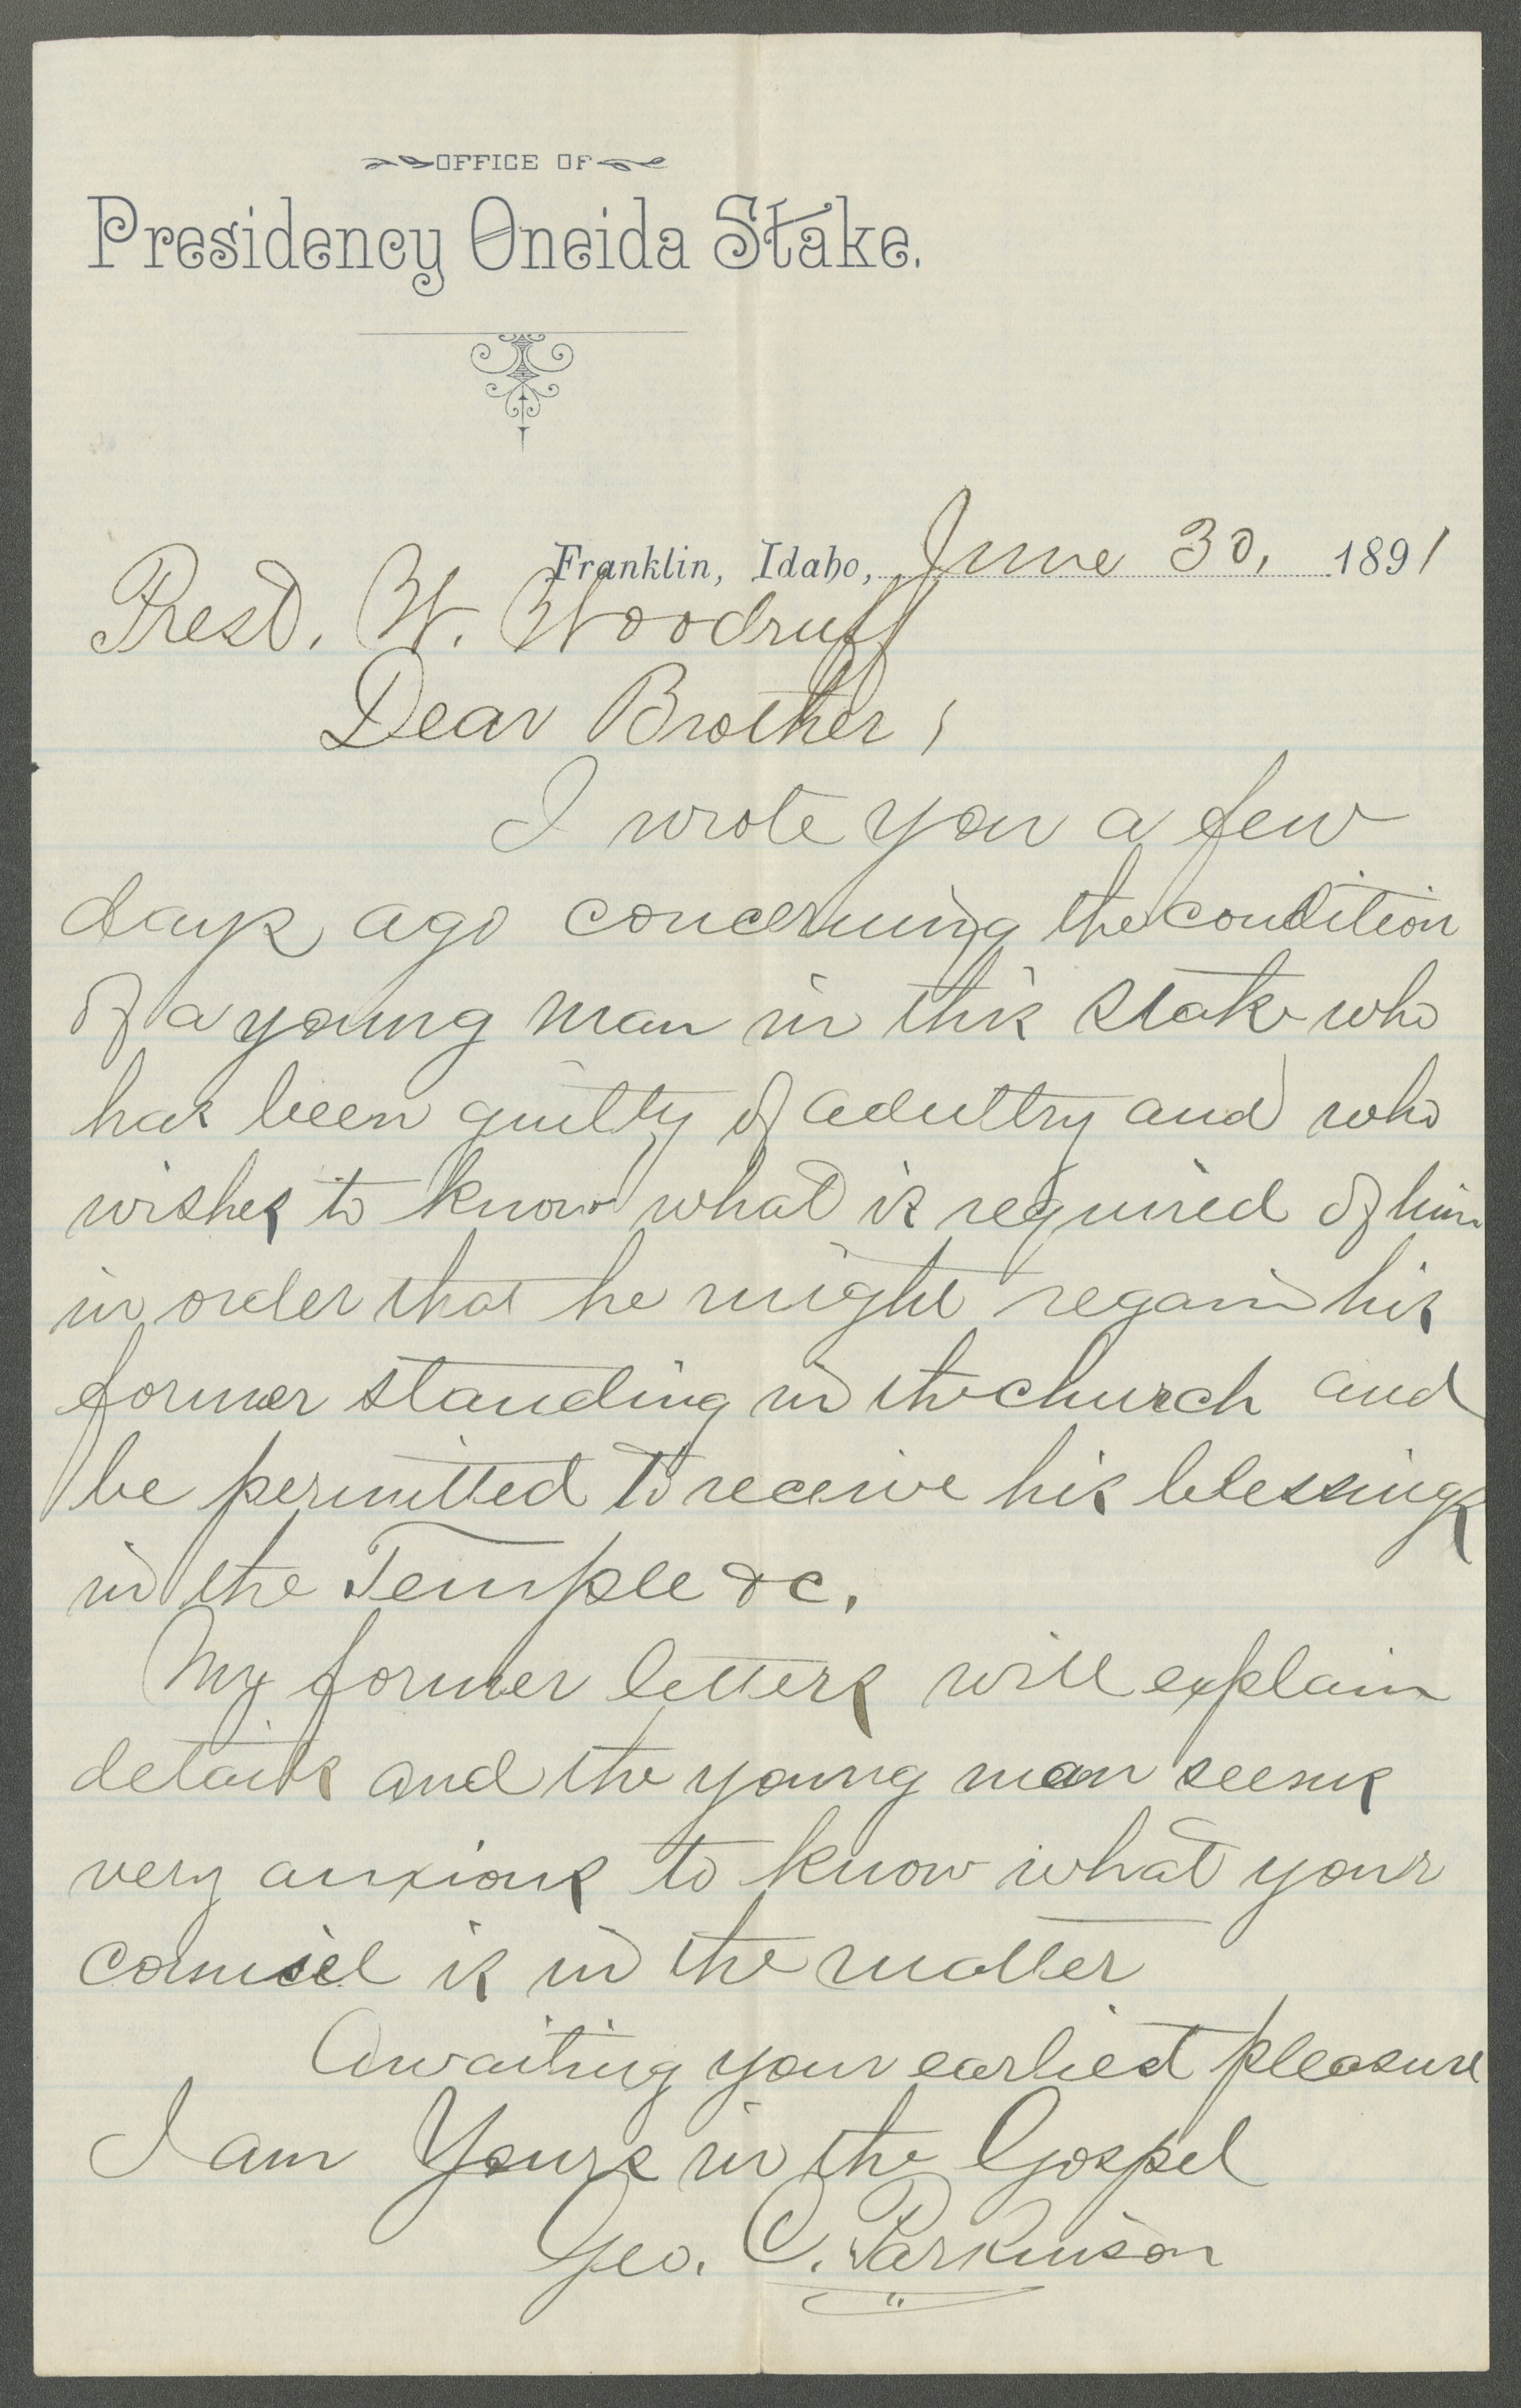 OFFICE OF
Presidency Oneida Stake.
Franklin, Idaho, June 30, 1891
Prest. W. Woodruff
Dear Brother;
I wrote you a few
days ago concerning the condition
of a young man in this Stake who
has been guilty of adultry and who
wishes to know what is required of him
in order that he might regain his
former standing in the church and
be permitted to receive his blessings
in the Temple &c.
My former letters will explain
details and the young man seems
very anxious to know what your
counsel is in the matter
Awaiting your earliest pleasure
I am Yours in the Gospel
Geo. C. Parkinson